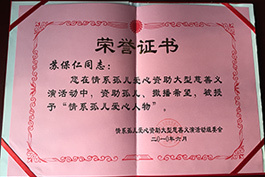 荣誉证书
苏保仁同志：
您在情系孤人爱心资助大型慈善义
演活动中，资助孤人、撒播希望，被授
予“情系孤人爱心人物”。
情系孤人爱心资助大型慈善义演活动组委会
二〇一〇年六月